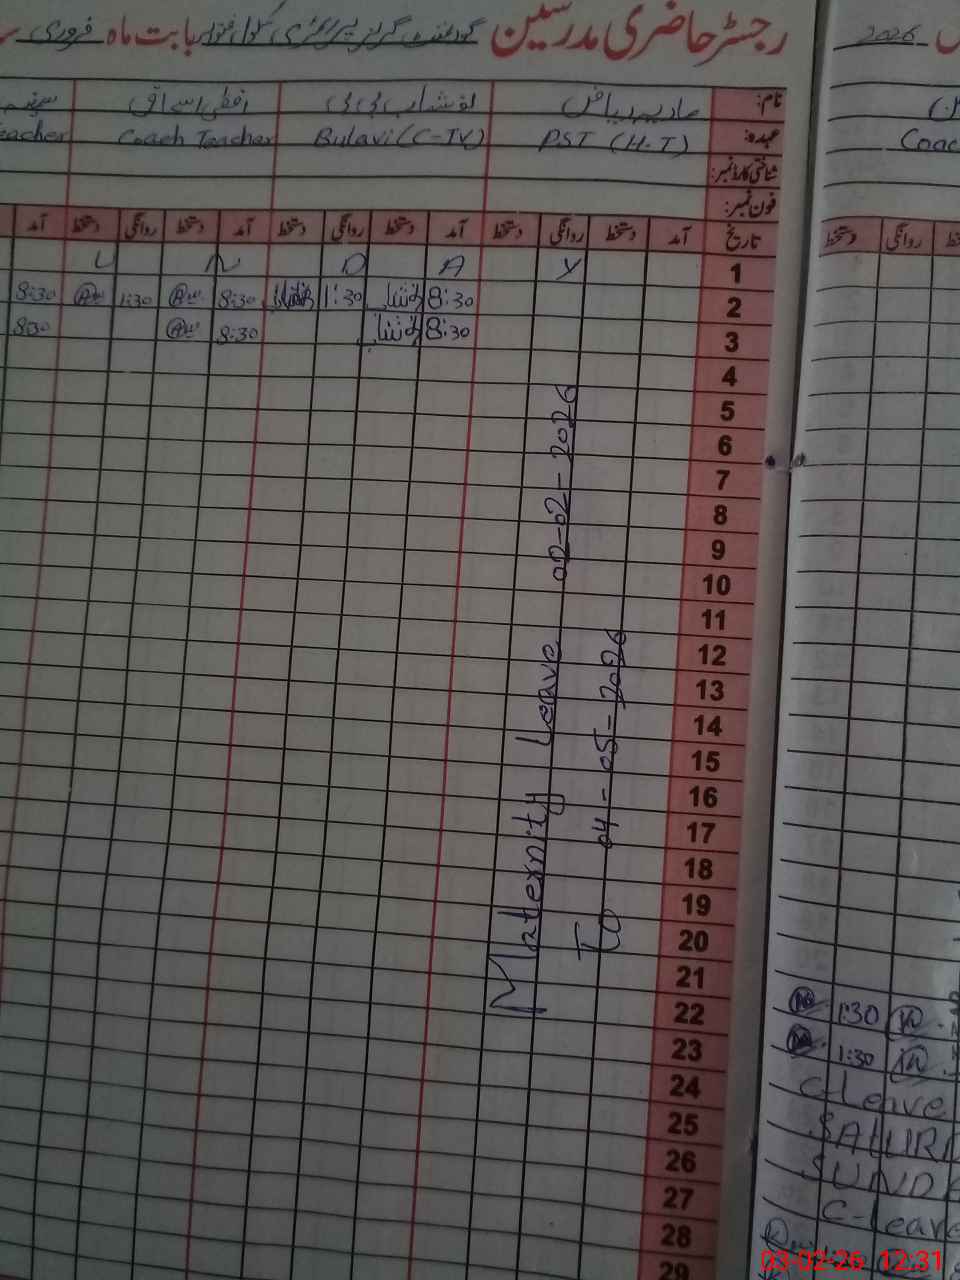 رجسٹر حاضری مدرسین گورنمنٹ گرلز پرائمری سکول بابت ماہ فروری
2026
نام: ماریہ ریاض
عہدہ: PST (H.T) Bulavi (C-IV) Coach Teacher eacher
شناختی کارڈ نمبر:
فون نمبر:
تاریخ آمد دستخط روانگی دستخط آمد دستخط روانگی دستخط آمد دستخط روانگی دستخط آمد
1 Y A D N U
2 8:30 1:30 8:30 1:30 8:30
3 8:30 8:30 8:30
4
5
6
7
8
9
10
11
12
13
14
15
16
17
18
19
20
21
22
23
24
25
26
27
28
29
Maternity Leave 02-02-2026
To 04-05-2026
Coac
دستخط روانگی
1:30
1:30
C-Leave
SATUR
SUND
C-Leave
03-02-26 12:31